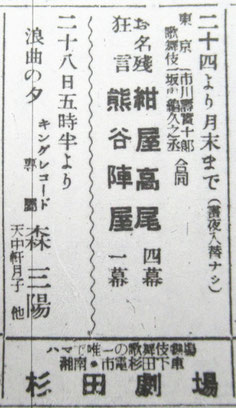 二十四より月末まで(晝夜入替ナシ)
東京 市川壽實十郎
歌舞伎 坂東鶴久之丞 合同
お名残 紺屋高尾 四幕
狂言 熊谷陣屋 一幕
二十八日五時半より
浪曲の夕 キングレコード専属 森三陽
天中軒月子 他
ハマ唯一の歌舞伎劇場
湘南・市電杉田下車
杉田劇場